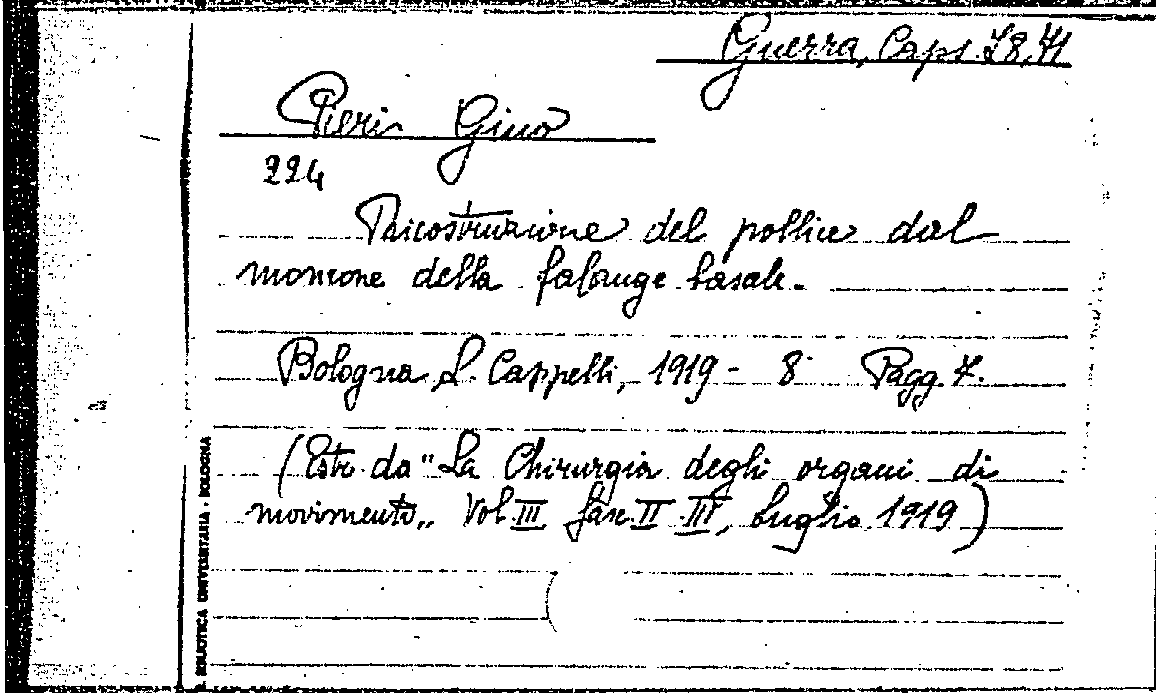 Guerra, Caps. 78, 41
Pieri Gino
224
Ricostruzione del pollice dal
moncone della falange basale.
Bologna L. Cappelli, 1919 - 8° Pagg. 7.
(Estr. da "La Chirurgia degli organi di
movimento„ Vol. III fasc. II-III, Luglio 1919)
B. BIBLIOTECA UNIVERSITARIA - BOLOGNA